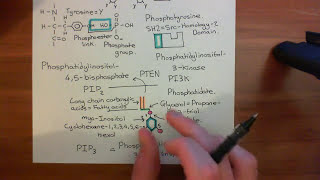 Tyrosine = Y
Phosphotyrosine
SH2 = Src-Homology-2
Domain.
Phosphoester
Link.
Phosphate
group.
Phosphatidylinositol-
3-Kinase
4,5-bisphosphate
PTEN
PI3K
PIP2
Phosphatidate.
Long chain carboxylic
acids = Fatty acids
Glycerol = Propane-
triol
myo-Inositol
Cyclohexane-1,2,3,4,5,6-
hexol
PIP3 = Phosph